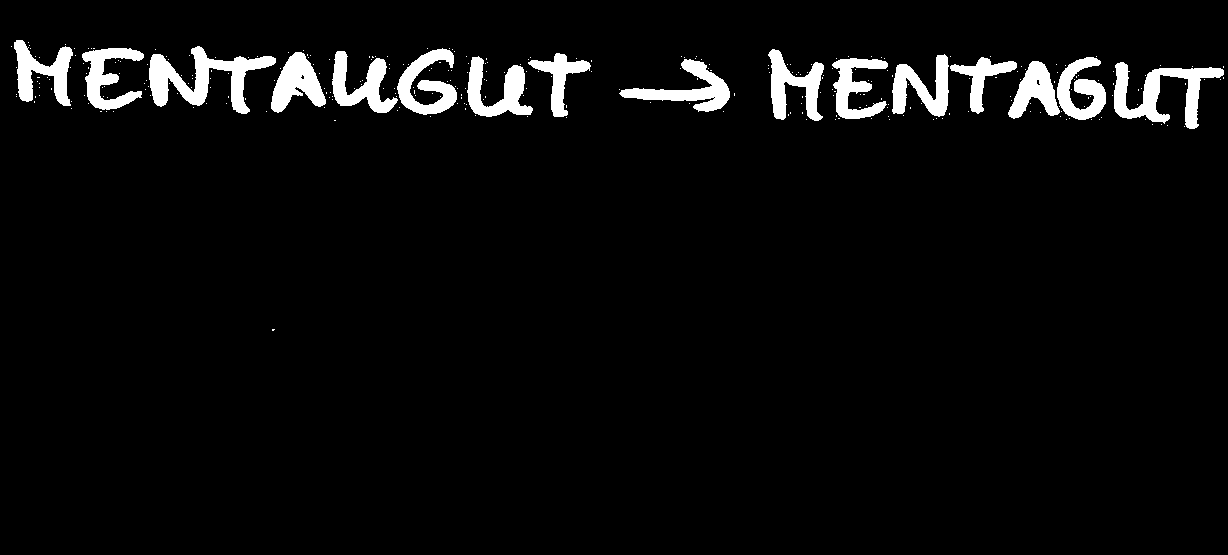 MENTAUGUT → MENTAGUT